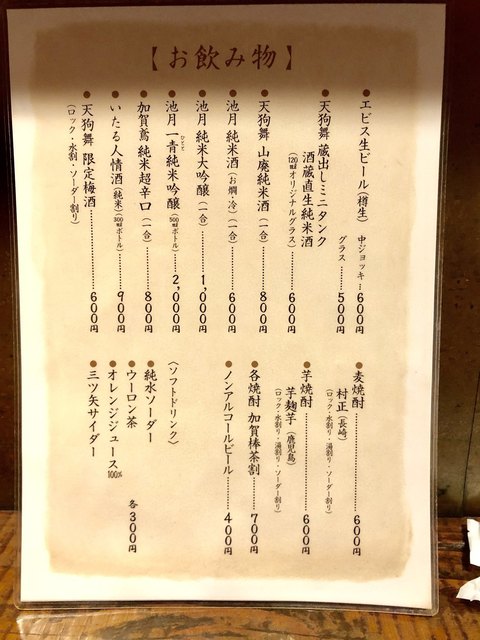 【お飲み物】
●エビス生ビール（樽生） 中ジョッキ…600円
グラス……500円
●天狗舞 蔵出しミニタンク
酒蔵直生純米酒
（120㎖オリジナルグラス）……600円
●天狗舞 山廃純米酒（一合）……800円
●池月 純米酒（お燗・冷）（一合）……600円
●池月 純米大吟醸（一合）……1,000円
●池月 一青純米吟醸（500㎖ボトル）…2,000円
ひとと
●加賀鳶 純米超辛口（一合）……800円
●いたる人情酒（純米）（300㎖ボトル）……900円
●天狗舞 限定梅酒……600円
（ロック・水割・ソーダー割り）
●麦焼酎……600円
村正（長崎）
（ロック・水割り・湯割り・ソーダー割り）
●芋焼酎……600円
芋麹芋（鹿児島）
（ロック・水割り・湯割り・ソーダー割り）
●各焼酎 加賀棒茶割……700円
●ノンアルコールビール……400円
〈ソフトドリンク〉
●純水ソーダー
●ウーロン茶
●オレンジジュース100%
●三ツ矢サイダー
各300円